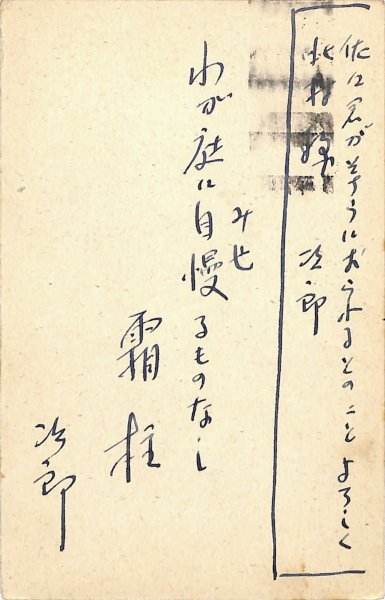 佐江君がそちらにおられるとのことよろしく
次郎
北村様
わが庭に自慢
みせ
るものなし
霜柱
次郎